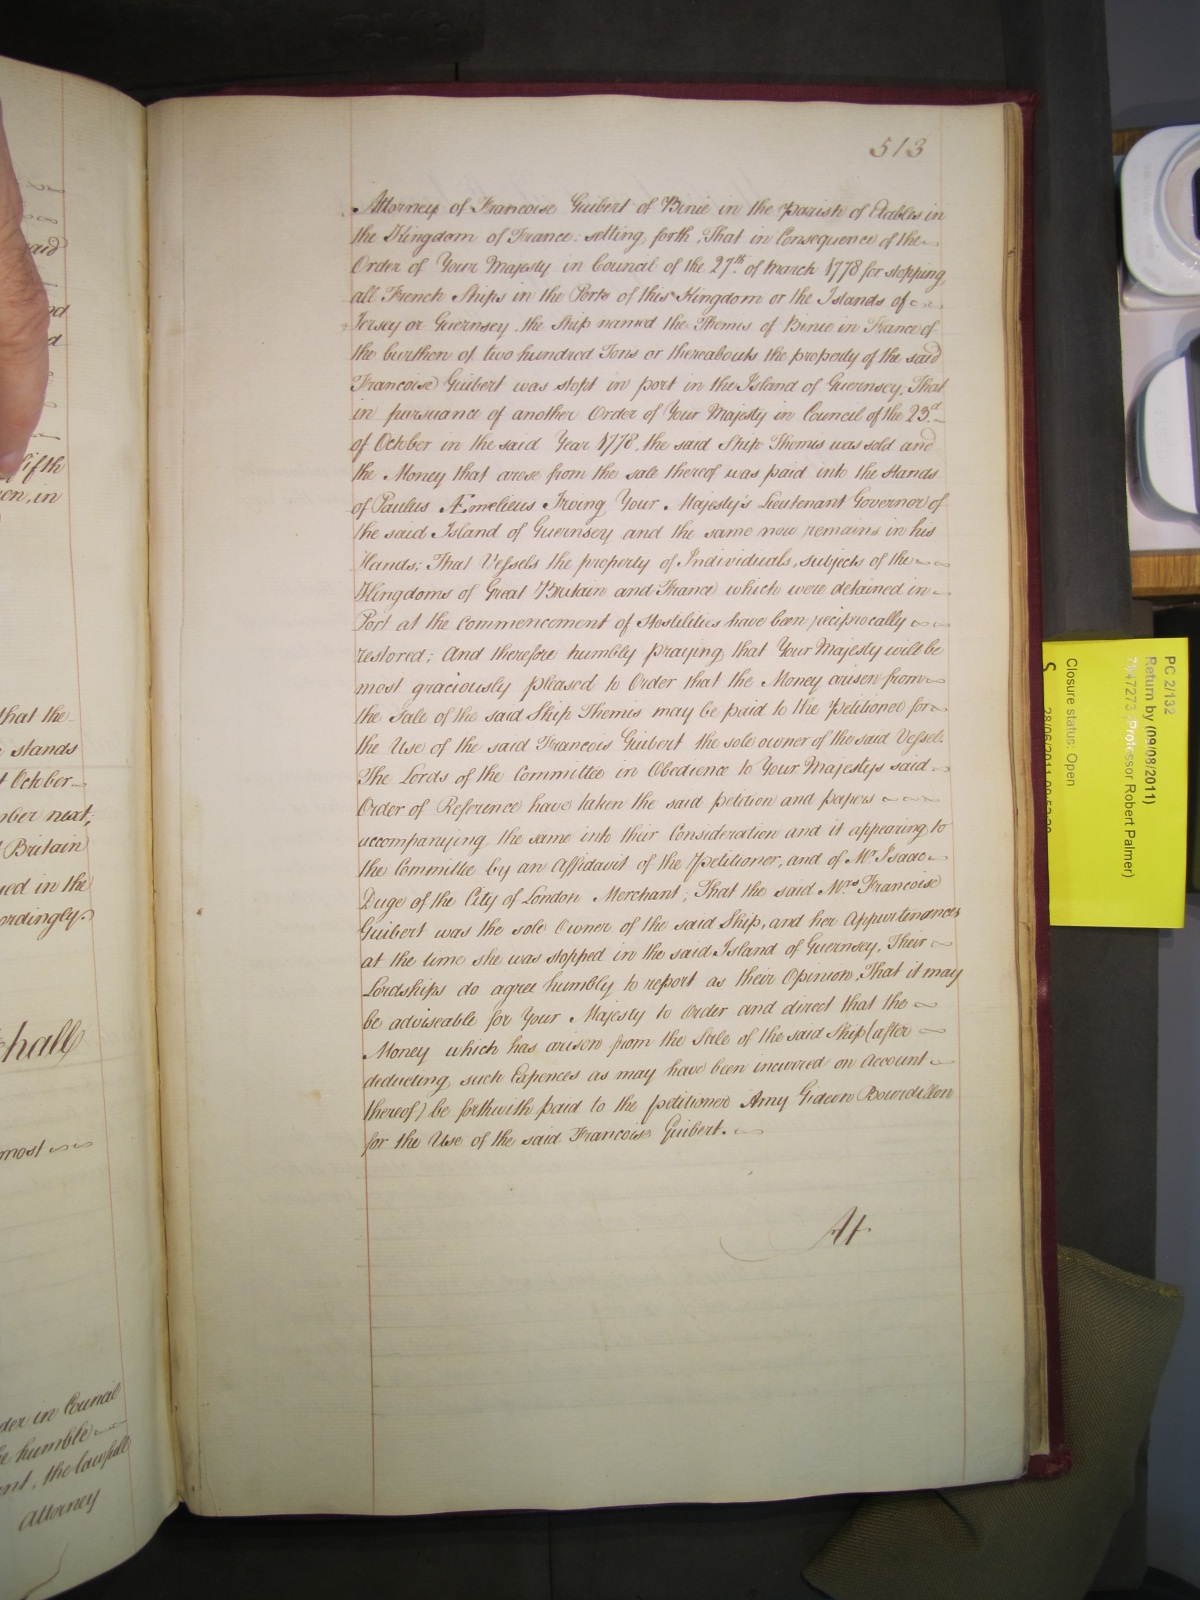 513
Attorney of Francoise Guibert of Binic in the Parish of Etables in
the Kingdom of France: setting forth, That in Consequence of the
Order of Your Majesty in Council of the 27th. of March 1778 for stopping
all French Ships in the Ports of this Kingdom or the Islands of
Jersey or Guernsey, the Ship named the Themis of Binic in France of
the burthen of two hundred Tons or thereabouts the property of the said
Francoise Guibert was stopt in port in the Island of Guernsey. That
in pursuance of another Order of Your Majesty in Council of the 23d.
of October in the said Year 1778, the said Ship Themis was sold and
the Money that arose from the sale thereof was paid into the Hands
of Paulus Æmelieus Irving Your Majesty's Lieutenant Governor of
the said Island of Guernsey and the same now remains in his
Hands; That Vessels the property of Individuals, subjects of the
Kingdoms of Great Britain and France which were detained in
Port at the commencement of Hostilities have been reciprocally
restored; And therefore humbly praying that Your Majesty will be
most graciously pleased to Order that the Money arisen from
the Sale of the said Ship Themis may be paid to the Petitioner for
the Use of the said Francois Guibert the sole owner of the said Vessel.
The Lords of the Committee in Obedience to Your Majestys said
Order of Reference have taken the said petition and papers
accompanying the same into their Consideration and it appearing to
the Committee by an Affidavit of the Petitioner, and of Mr. Isaac
Duge of the City of London Merchant; That the said Mrs. Francoise
Guibert was the sole Owner of the said Ship, and her Appurtenances
at the time she was stopped in the said Island of Guernsey. Their
Lordships do agree humbly to report as their Opinion, That it may
be adviseable for Your Majesty to Order and direct that the
Money which has arisen from the Sale of the said Ship (after
deducting such Expences as may have been incurred on Account
thereof) be forthwith paid to the petitioner Amy Gideon Bourdillon
for the Use of the said Francois Guibert.
At
aid
fifth
en, in
that the
stands
October
mber next,
Britain
ued in the
ordingly.
hall
most
der in Council
humble
the lawfull
Attorney
PC 2/132
Return by (09/08/2011)
7847273 (Professor Robert Palmer)
Closure status: Open
S